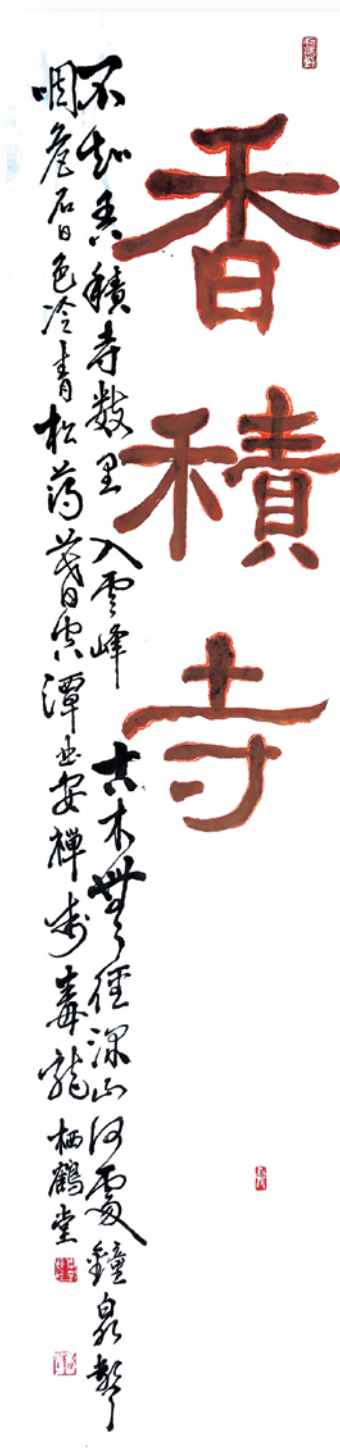 香積寺
不知香積寺数里入雲峰古木無人徑深山何處鐘泉聲
咽危石日色冷青松薄暮空潭曲安禪制毒龍 栖鶴堂